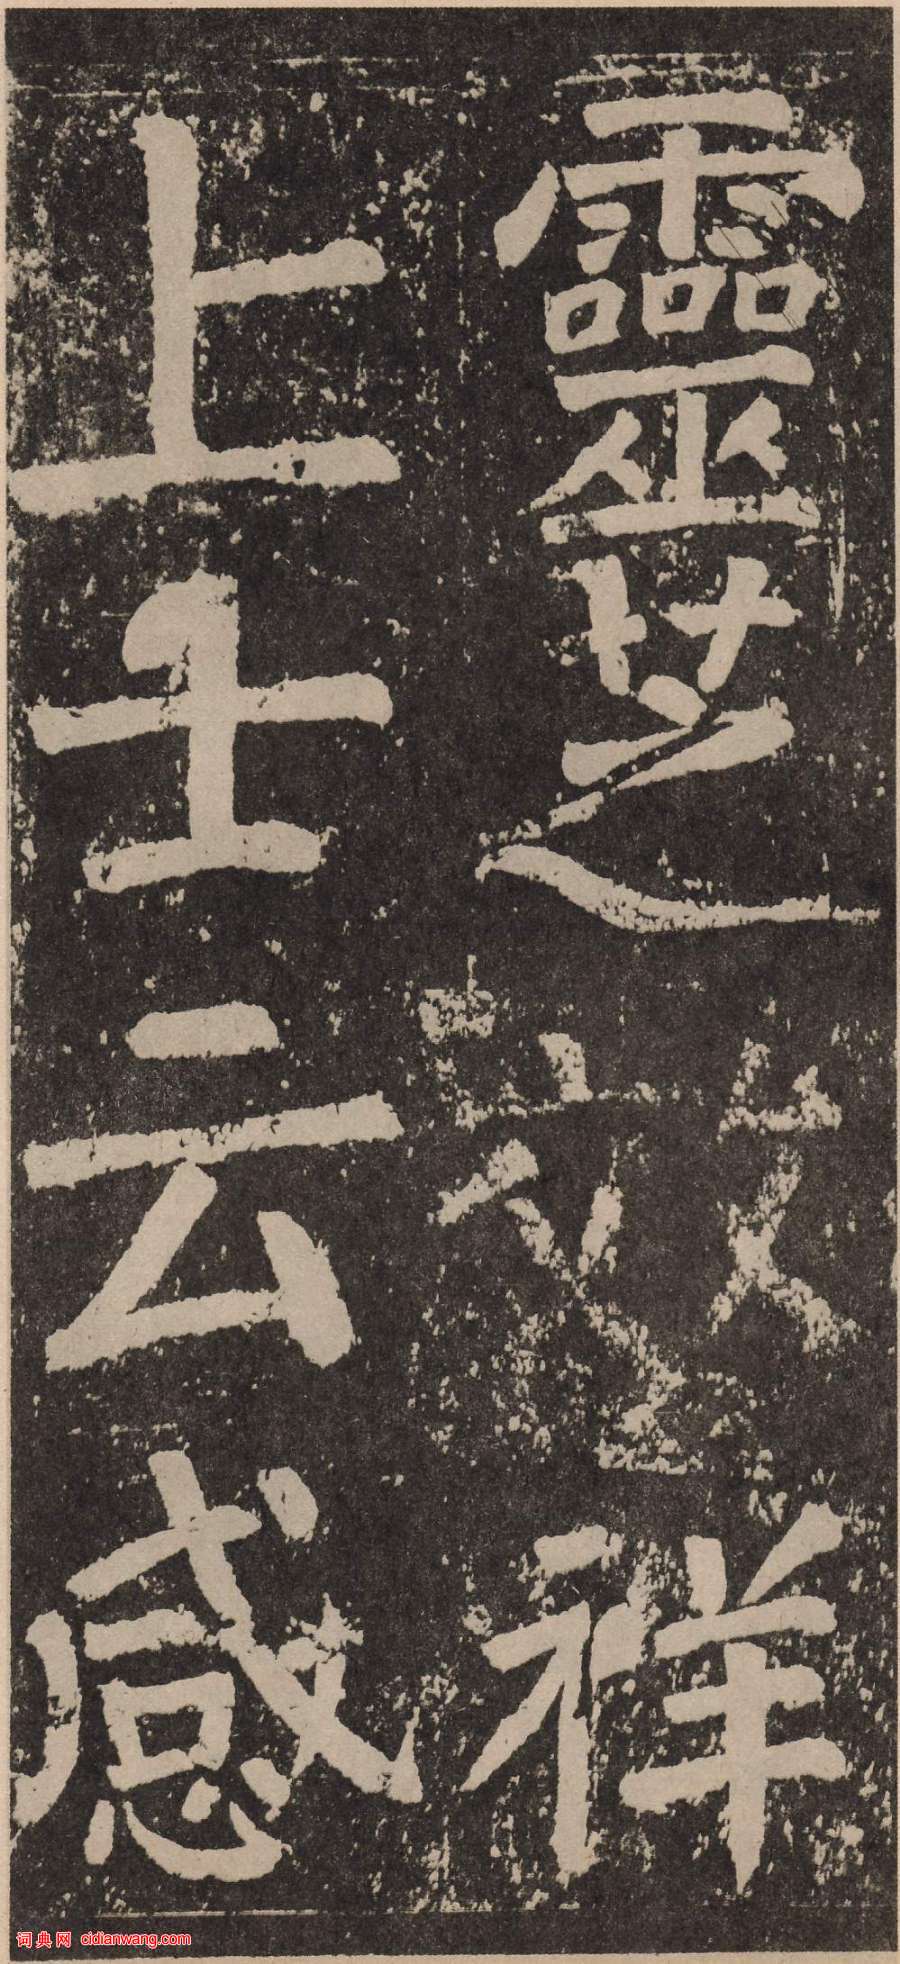 靈芝效祥
上壬云感
词典网 cidianwang.com